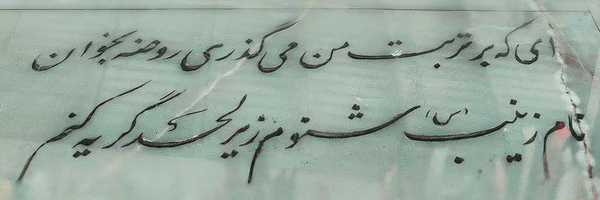 ای که بر تربت من می گذری روضه بخوان
نام زینب (س) شنوم زیر لحد گریه کنم